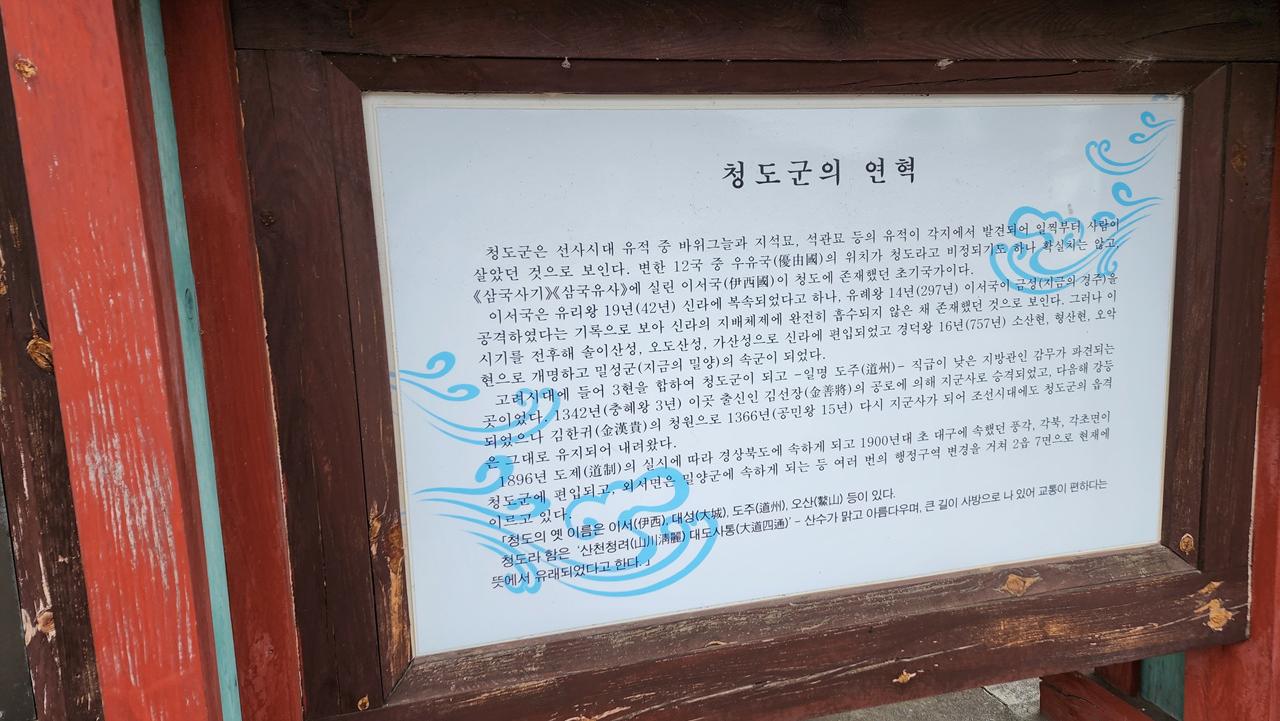 청도군의 연혁
청도군은 선사시대 유적 중 바위그늘과 지석묘, 석관묘 등의 유적이 각지에서 발견되어 일찍부터 사람이
살았던 것으로 보인다. 변한 12국 중 우유국(優由國)의 위치가 청도라고 비정되기도 하나 확실치는 않고
《삼국사기》《삼국유사》에 실린 이서국(伊西國)이 청도에 존재했던 초기국가이다.
이서국은 유리왕 19년(42년) 신라에 복속되었다고 하나, 유례왕 14년(297년) 이서국이 금성(지금의 경주)을
공격하였다는 기록으로 보아 신라의 지배체제에 완전히 흡수되지 않은 채 존재했던 것으로 보인다. 그러나 이
시기를 전후해 솔이산성, 오도산성, 가산성으로 신라에 편입되었고 경덕왕 16년(757년) 소산현, 형산현, 오악
현으로 개명하고 밀성군(지금의 밀양)의 속군이 되었다.
고려시대에 들어 3현을 합하여 청도군이 되고 -일명 도주(道州)- 직급이 낮은 지방관인 감무가 파견되는
곳이었다. 1342년(충혜왕 3년) 이곳 출신인 김선장(金善將)의 공로에 의해 지군사로 승격되었고, 다음해 강등
되었으나 김한귀(金漢貴)의 청원으로 1366년(공민왕 15년) 다시 지군사가 되어 조선시대에도 청도군의 읍격
은 그대로 유지되어 내려왔다.
1896년 도제(道制)의 실시에 따라 경상북도에 속하게 되고 1900년대 초 대구에 속했던 풍각, 각북, 각초면이
청도군에 편입되고, 외서면은 밀양군에 속하게 되는 등 여러 번의 행정구역 변경을 거쳐 2읍 7면으로 현재에
이르고 있다.
「청도의 옛 이름은 이서(伊西), 대성(大城), 도주(道州), 오산(鰲山) 등이 있다.
청도라 함은 '산천청려(山川淸麗) 대도사통(大道四通)' - 산수가 맑고 아름다우며, 큰 길이 사방으로 나 있어 교통이 편하다는
뜻에서 유래되었다고 한다.」